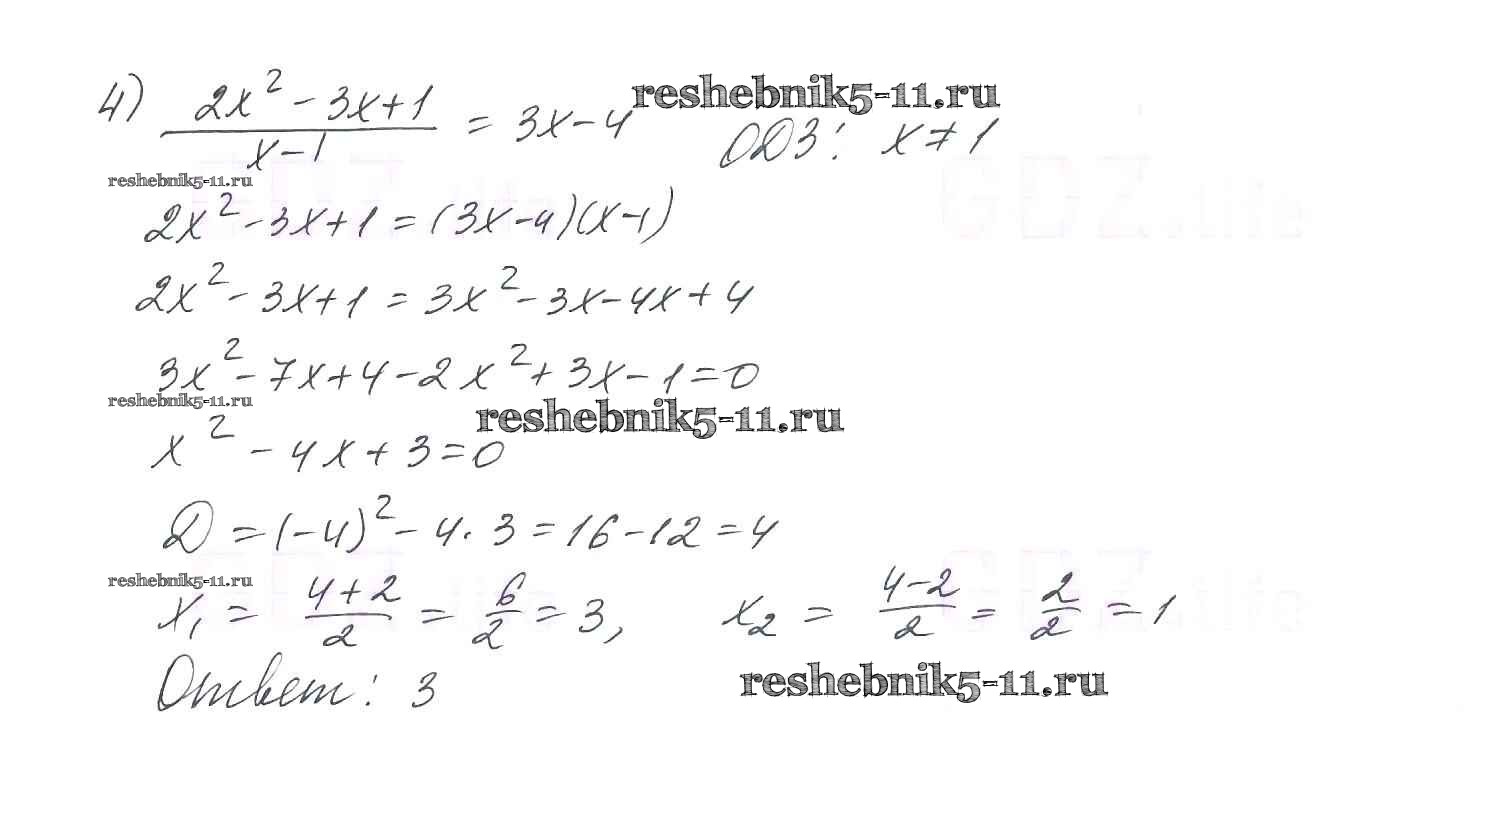 4) (2x² - 3x + 1)/(x - 1) = 3x - 4 ОДЗ: x ≠ 1
reshebnik5-11.ru
reshebnik5-11.ru
2x² - 3x + 1 = (3x - 4)(x - 1)
GDZ.life
2x² - 3x + 1 = 3x² - 3x - 4x + 4
3x² - 7x + 4 - 2x² + 3x - 1 = 0
reshebnik5-11.ru
reshebnik5-11.ru
x² - 4x + 3 = 0
D = (-4)² - 4·3 = 16 - 12 = 4
reshebnik5-11.ru
GDZ.life
x₁ = (4 + 2)/2 = 6/2 = 3, x₂ = (4 - 2)/2 = 2/2 = 1
Ответ: 3
reshebnik5-11.ru